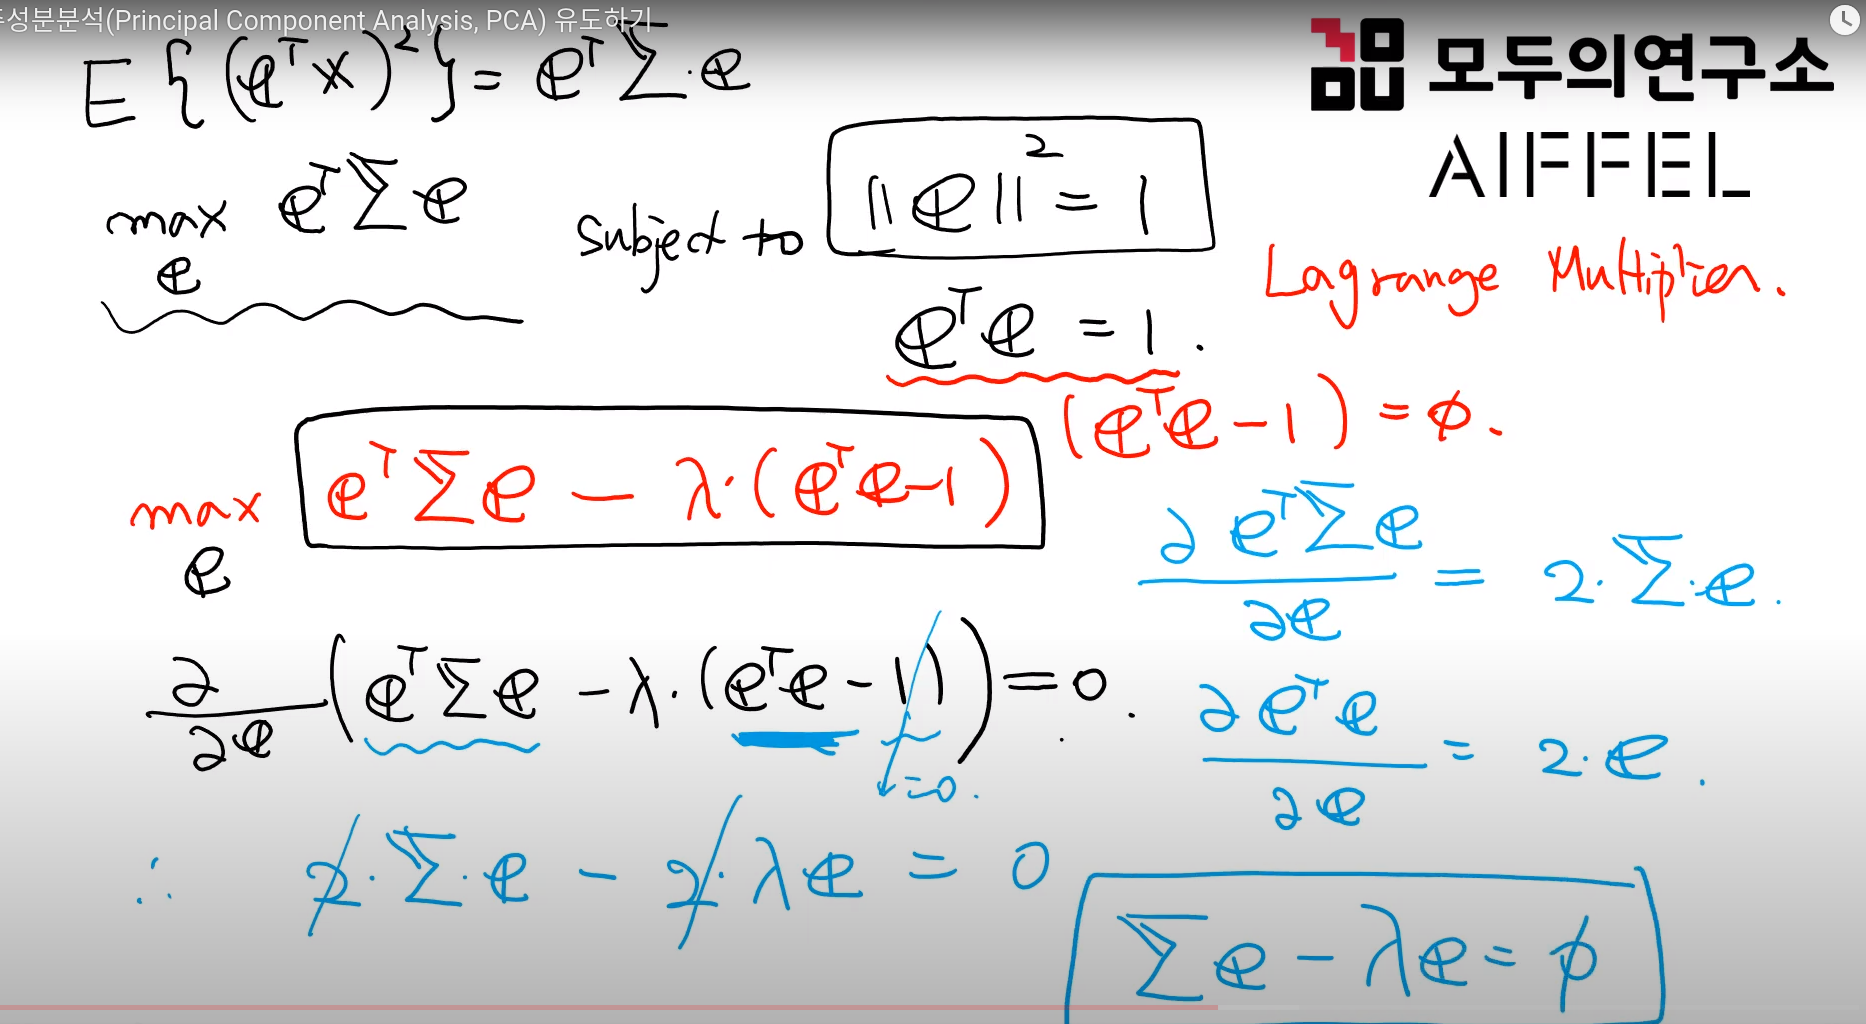 주성분분석(Principal Component Analysis, PCA) 유도하기
E{(eᵀx)²} = eᵀΣ·e
모두의연구소
AIFFEL
max eᵀΣe subject to ||e||² = 1
e
Lagrange Multiplier.
eᵀe = 1.
(eᵀe - 1) = ϕ.
max eᵀΣe - λ·(eᵀe-1)
e
∂eᵀΣe / ∂e = 2·Σ·e.
∂/∂e (eᵀΣe - λ·(eᵀe - 1)) = 0.
=0.
∂eᵀe / ∂e = 2·e.
∴ 2·Σ·e - 2·λe = 0
Σe - λe = ϕ